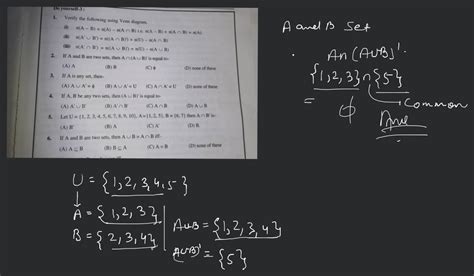 Do yourself-3 :
1. Verify the following using Venn diagram.
2. If A and B are two sets, then A ∩ (A ∪ B)' is equal to-
(A) A (B) B (C) ϕ (D) none of these
3. If A is any set, then-
(A) A ∪ A' = ϕ (B) A ∪ A' = U (C) A ∩ A' = U (D) none of these
4. If A, B be any two sets, then (A ∪ B)' is equal to-
(A) A' ∪ B' (B) A' ∩ B' (C) A ∩ B (D) A ∪ B
5. Let U = {1, 2, 3, 4, 5, 6, 7, 8, 9, 10}, A = {1, 2, 5}, B = {6, 7} then A ∩ B' is-
(A) B' (B) A (C) A' (D) B.
6. If A and B are two sets, then A ∪ B = A ∩ B iff-
(A) A ⊆ B (B) B ⊆ A (C) A = B (D) none of these
A and B Set
A∩(A∪B)'
{1,2,3}∩{5}
= ϕ Common
Ans
U = {1,2,3,4,5}
A = {1,2,3}
B = {2,3,4}
A∪B = {1,2,3,4}
(A∪B)' = {5}